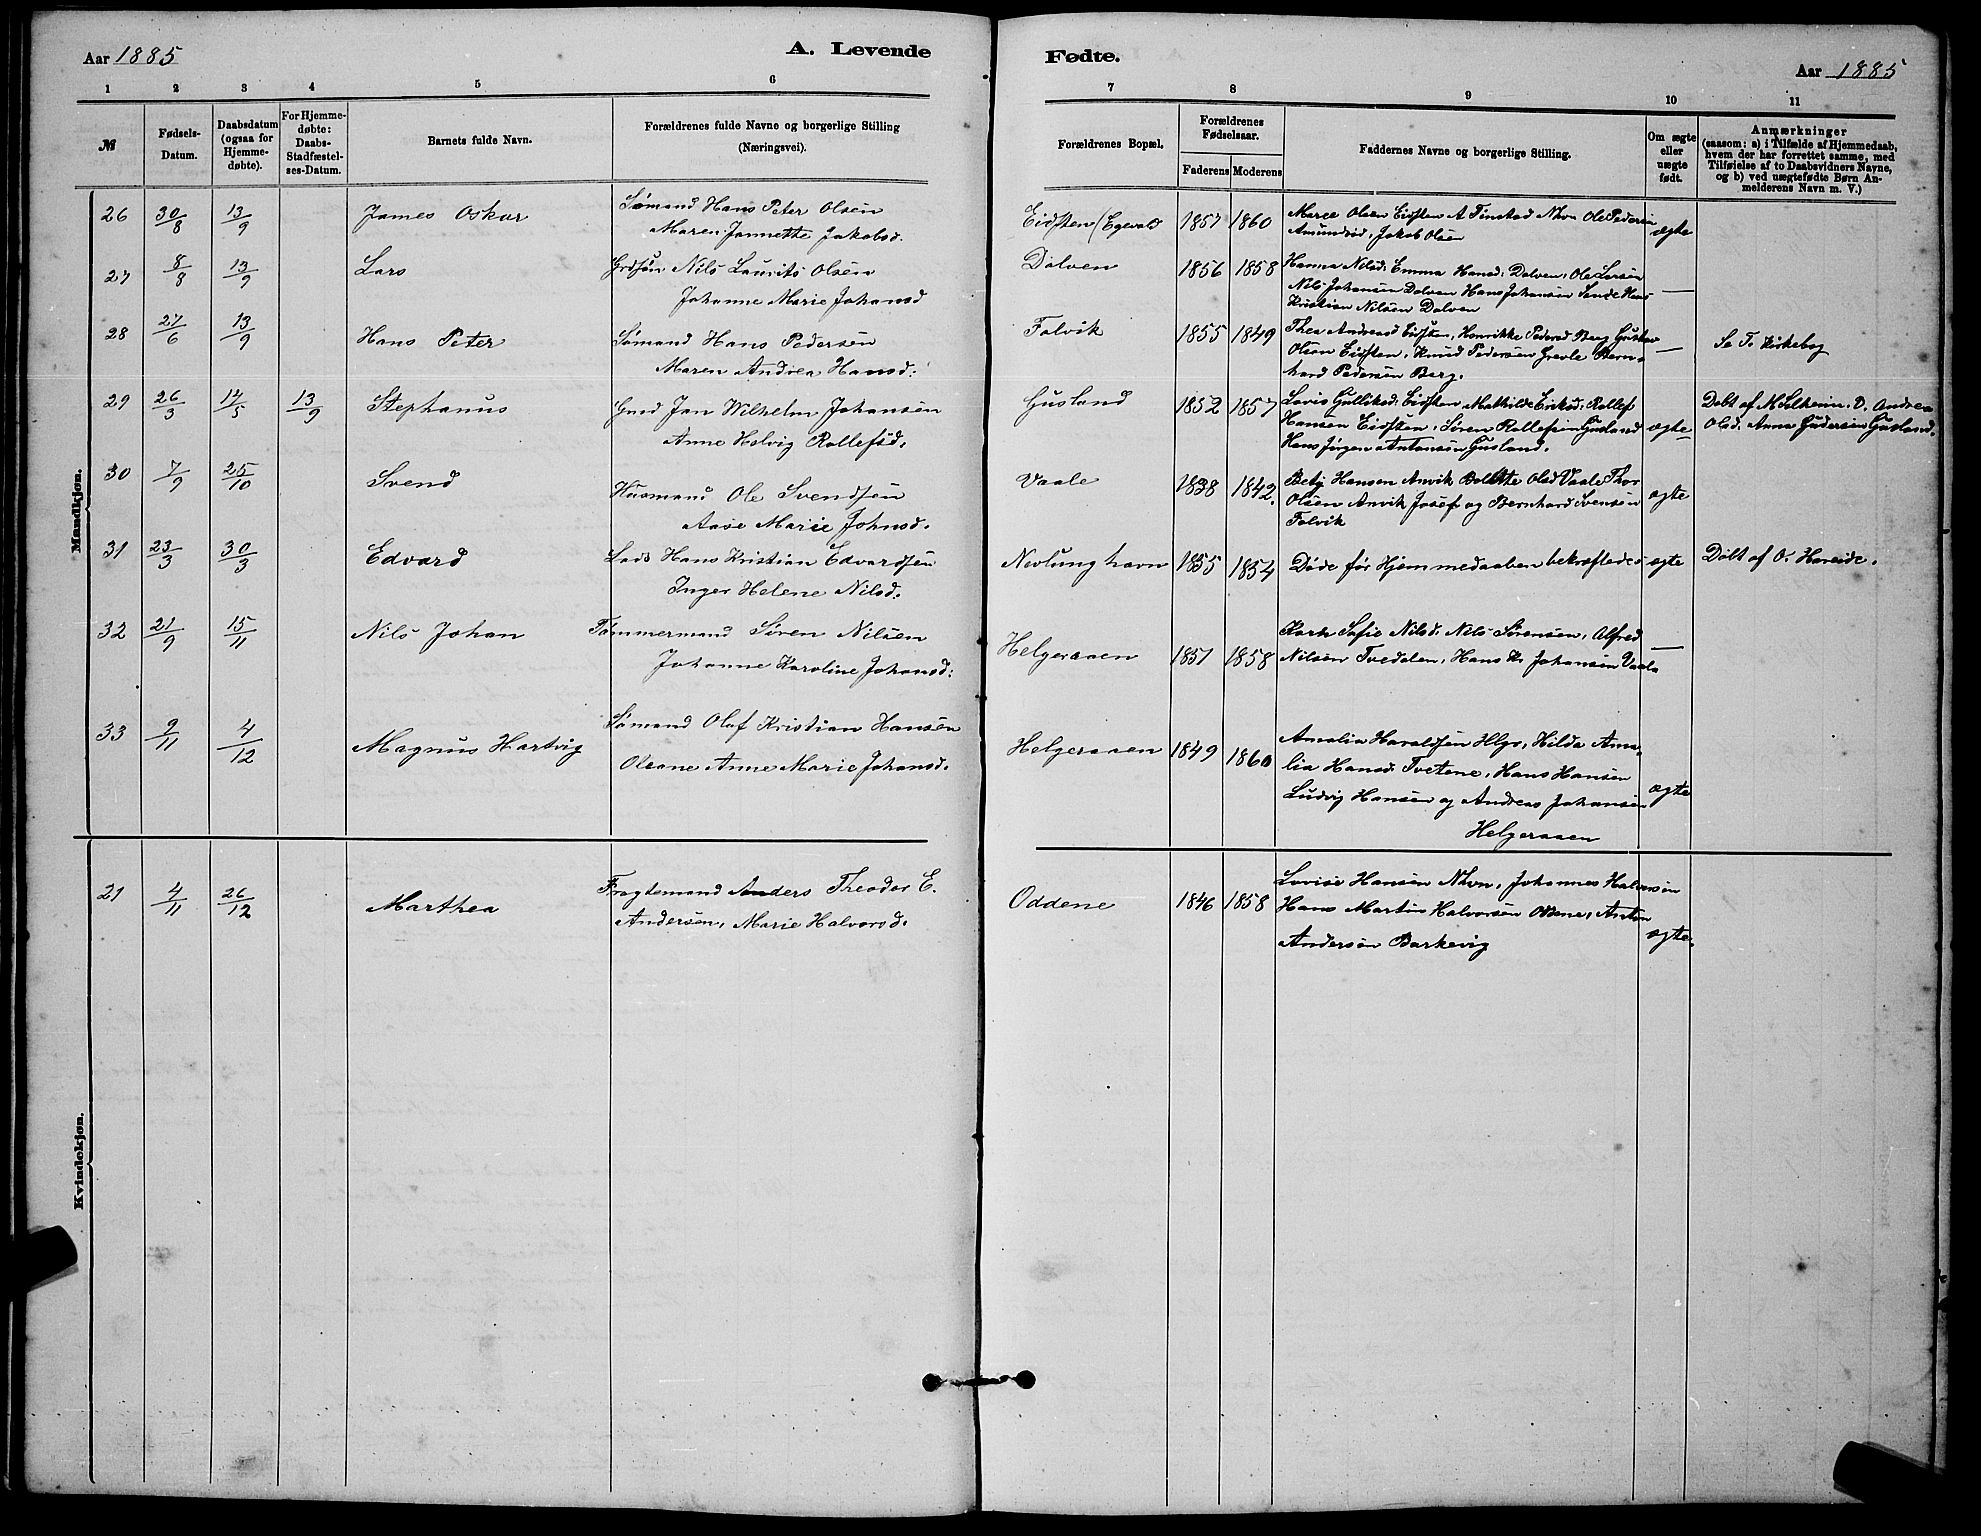 Aar 1885
A. Levende
1 2 3 4 5 6
№
Fødsels-Datum.
Daabsdatum (ogsaa for Hjemme-døbte).
For Hjemme-døbte: Daabs-Stadfæstel-ses-Datum.
Barnets fulde Navn.
Forældrenes fulde Navne og borgerlige Stilling
(Næringsvei).
Mandkjøn.
26 30/8 13/9 James Oskar Sømand Hans Peter Olsen
Maren Jannette Jakobsd.
27 8/8 13/9 Lars Grdfør Nils Laurits Olsen
Johanne Marie Johansd
28 27/6 13/9 Hans Peter Sømand Hans Pedersen
Maren Andrea Hansd:
29 26/3 14/5 13/9 Stephanus Gmd Jan Wilhelm Johansen
Anne Helvig Rollefsd.
30 7/9 25/10 Svend Husmand Ole Svendsen
Aase Marie Johnsd.
31 23/3 30/3 Edvard Lods Hans Kristian Edvardsen
Inger Helene Nilsd.
32 21/9 15/11 Nils Johan Tømmermand Søren Nilsen
Johanne Karoline Johansd:
33 9/11 4/12 Magnus Hartvig Sømand Olaf Kristian Hansen
Oleane Anne Marie Johansd.
Kvindekjøn.
21 4/11 26/12 Marthea Fragtemand Anders Theodor E.
Andersen, Marie Halvorsd.
Fødte.
Aar 1885
7 8 9 10 11
Forældrenes Bopæl.
Forældrenes Fødselsaar.
Faderens Moderens
Faddernes Navne og borgerlige Stilling.
Om ægte eller uægte født.
Anmærkninger
(saasom: a) i Tilfælde af Hjemmedaab,
hvem der har forrettet samme, med
Tilføielse af to Daabsvidners Navne,
og b) ved uægtefødte Børn An-
melderens Navn m. V.)
Eidsten (Egevald 1857 1860 Maree Olsen Eidsten A Tinstad Nhvn Ole Pedersen
Amundrød, Jakob Olsen ægte
Dolven 1856 1858 Hanna Nilsd. Emma Hansd: Dolven, Ole Larsen
Nils Johansen Dolven Hans Johansen Sande Hans
Kristian Nilsen Dolven —
Folvik 1855 1849 Thea Andreasd Eidsten, Henrikke Pedersd Berg Gustav
Olsen Eidsten, Knud Pedersen Grevle Bern-
hard Pedersen Berg. — Se T. Kirkebog
Gusland 1852 1857 Lovis Gulliksd: Eidsten Mathilde Eriksd: Rollef
Hansen Eidsten, Søren Rollefsen Gusland
Hans Jørgen Antonsen Gusland. ægte Døbt af Andrea
Olsd. Anne Gudersen Gusland.
Vaale 1838 1842. Betzy Hansen Anvik Bolette Olsd Vaale Thor
Olsen Anvik Josef og Bernhard Svensen
Folvik ægte
Nevlunghavn 1855 1854 Døde før Hjemmedaaben bekræftedes ægte Døbt af O. Hareide.
Helgeraaen 1857 1858 Karen Sofie Nilsd. Nils Sørensen, Alfred
Nilsen Tvedalen, Hans Kr Johansen Vaale —
Helgeraaen 1849 1860 Amalia Haraldsen Hlgr, Hilda Ama-
lia Hansd. Tvetene, Hans Hansen
Ludvig Hansen og Andreas Johansen
Helgeraaen ægte
Oddene 1846 1858 Lovise Hansen Nhvn, Johannes Halvorsen
Hans Martin Halvorsen Oddene, Anton
Andersen Barkevig ægte.